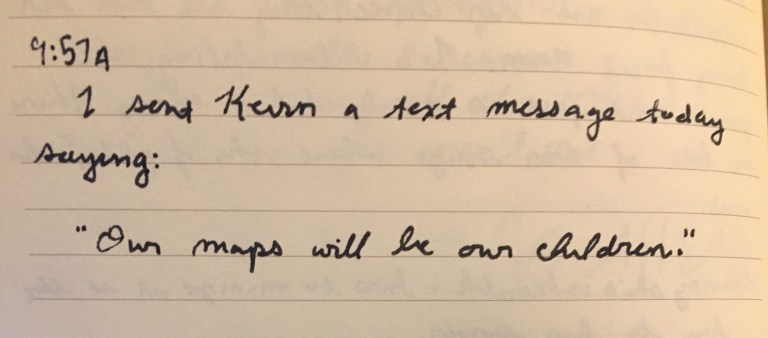 9:57A
I sent Kevin a text message today
saying:
"Our maps will be our children."